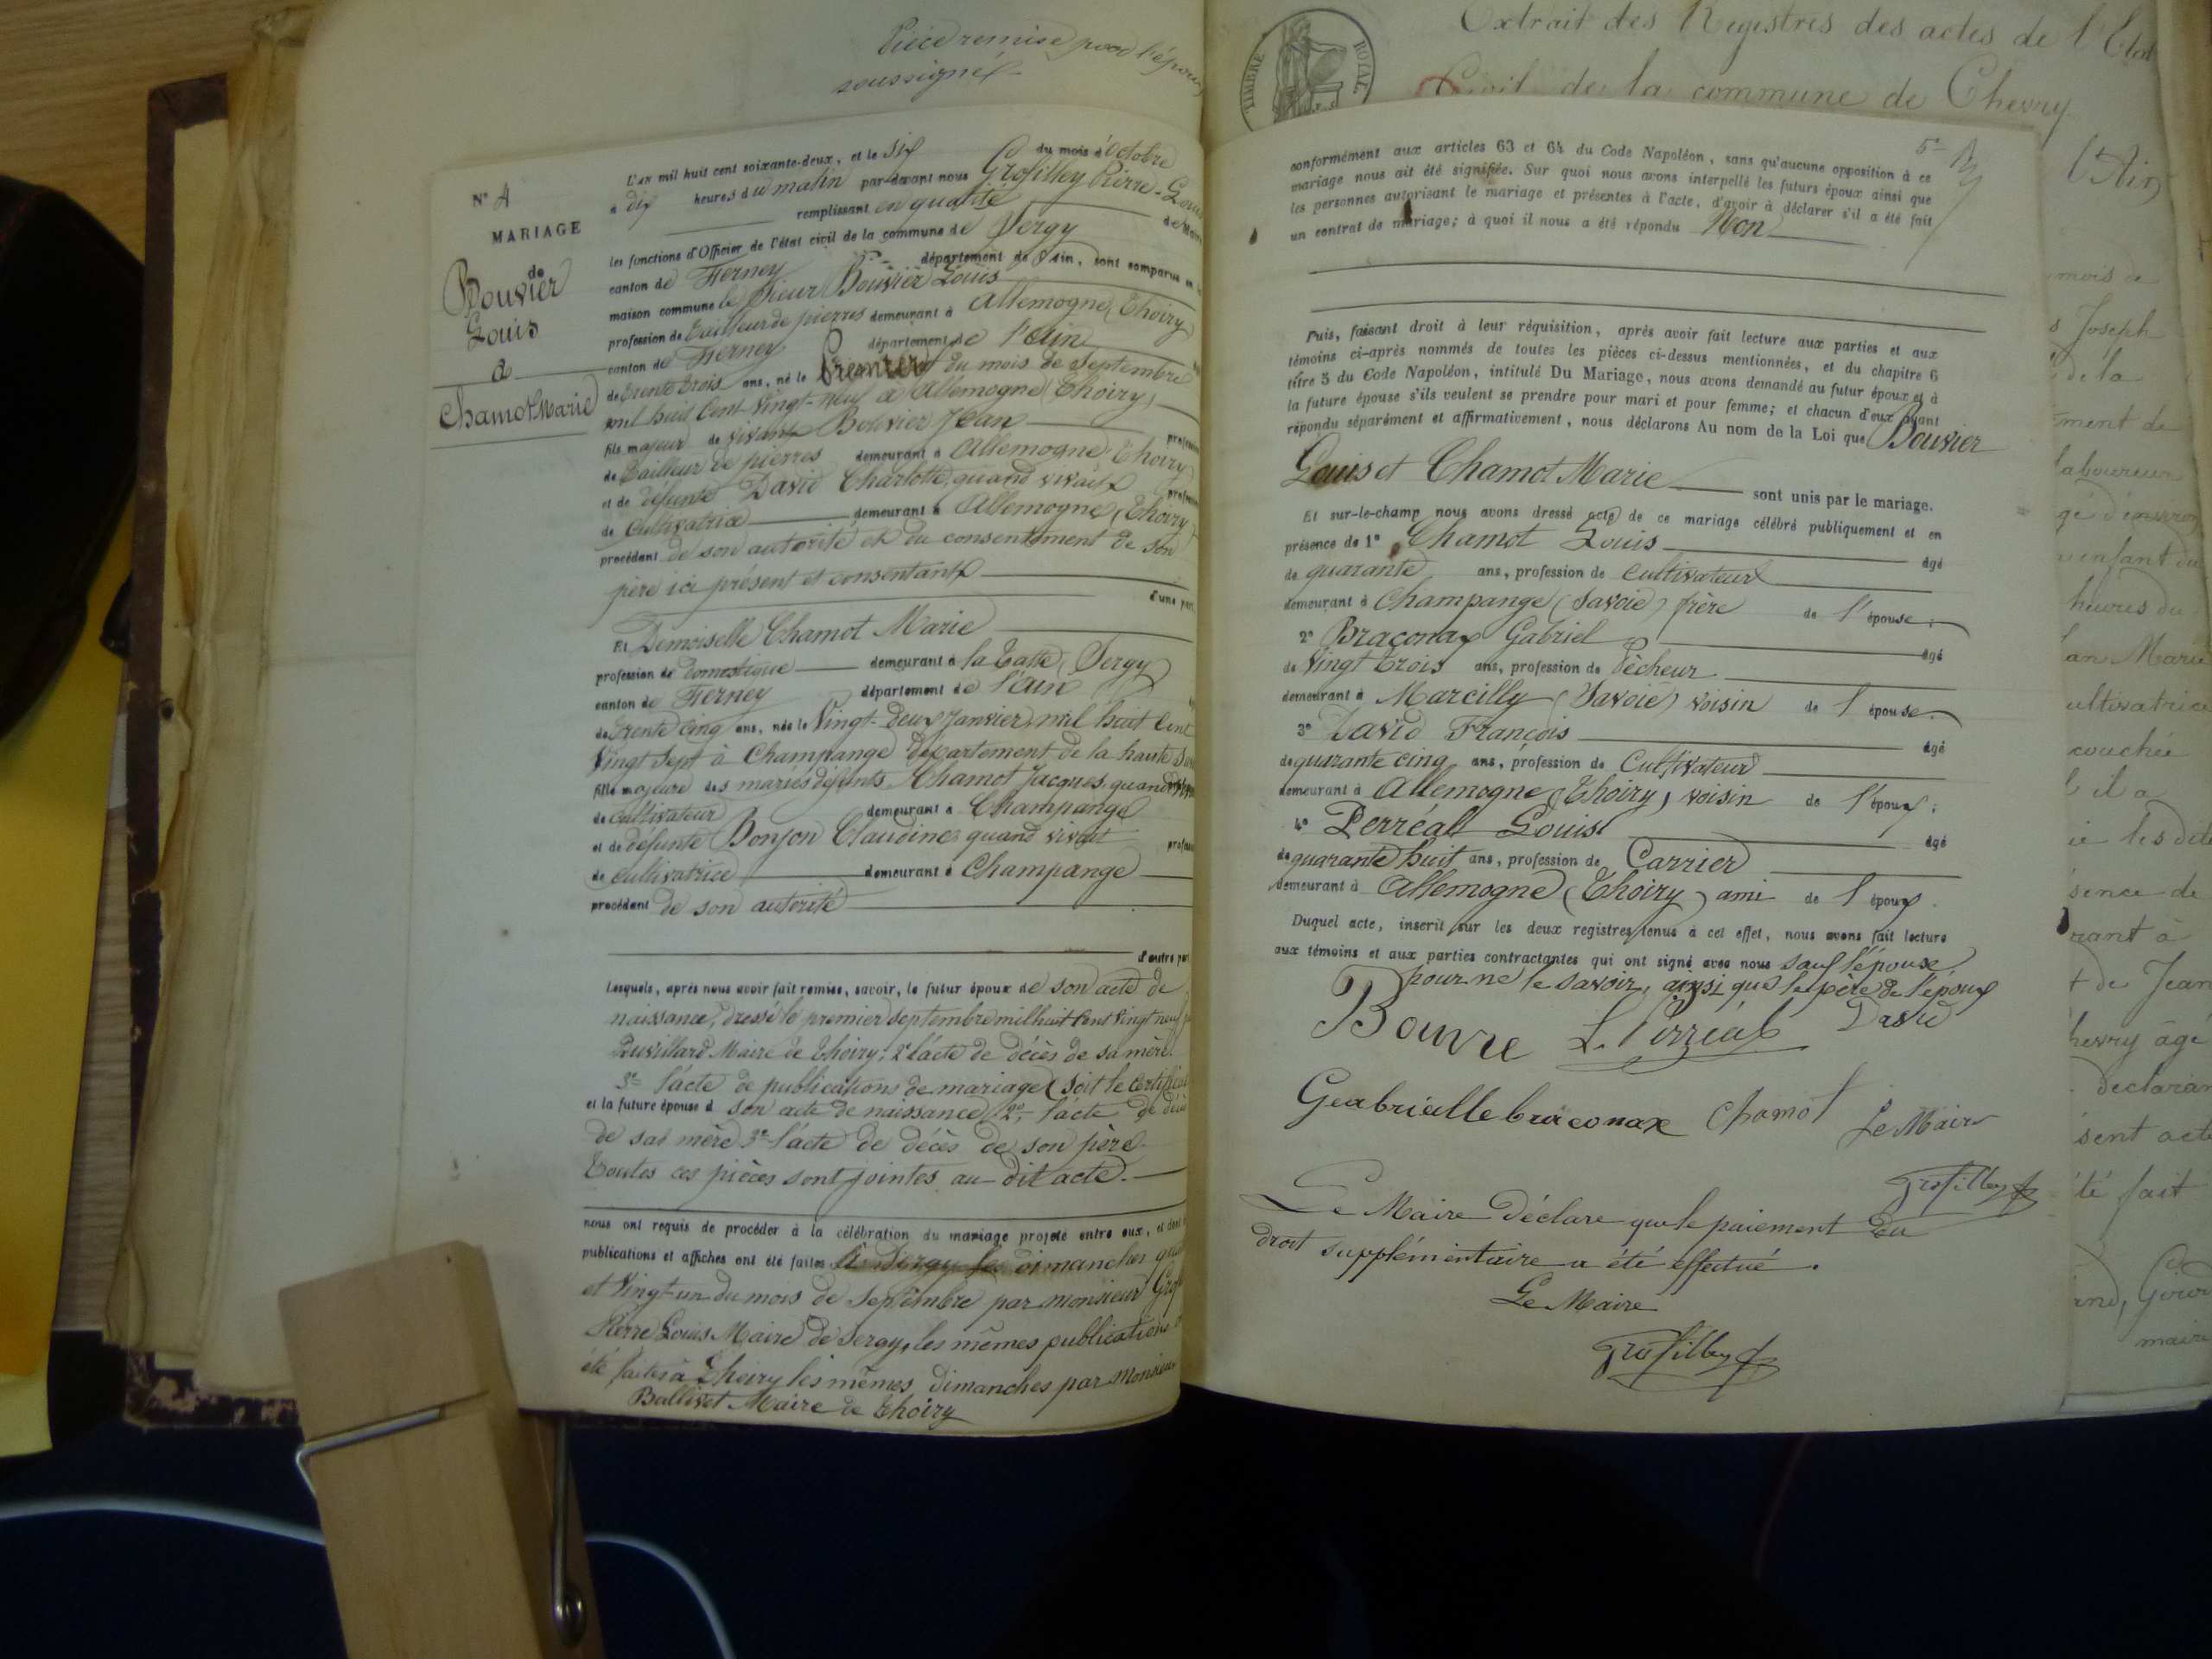 Pièce remise pour l'époux
soussigné
N° 4
MARIAGE
de
Bouvier
Louis
à
Chamot Marie
L'an mil huit cent soixante-deux, et le six du mois d'Octobre
à dix heures du matin par-devant nous Grosfilley Pierre-Louis
remplissant en qualité de Maire
les fonctions d'Officier de l'état civil de la commune de Sergy
canton de Ferney département de l'Ain, sont comparus en la
maison commune le Sieur Bouvier Louis
profession de Tailleur de pierres demeurant à Allemogne (Thoiry)
canton de Ferney département de l'Ain
de trente trois ans, né le premier du mois de Septembre
mil huit Cent Vingt-neuf à Allemogne (Thoiry)
fils majeur de vivant Bouvier Jean
de Tailleur de pierres demeurant à Allemogne (Thoiry)
et de défunte David Charlotte, quand vivait
de Cultivatrice demeurant à Allemogne (Thoiry)
procédant de son autorité et du consentement de son
père ici présent et consentant
d'une part
Et Demoiselle Chamot Marie
profession de Domestique demeurant à la Tatte (Sergy)
canton de Ferney département de l'Ain
de trente cinq ans, née le Vingt-deux Janvier mil huit Cent
Vingt Sept à Champange département de la haute
fille majeure des mariés défunts Chamot Jacques, quand
de Cultivateur demeurant à Champange
et de défunte Bonjon Claudine quand vivait
de cultivatrice demeurant à Champange
procédant de son autorité
d'autre part
Lesquels, après nous avoir fait remise, savoir, le futur époux de son acte de
naissance, dressé le premier septembre mil huit Cent Vingt neuf
Maire de Thoiry, 2° l'acte de décès de sa mère.
3° l'acte de publications de mariage (soit le certificat
et la future épouse d son acte de naissance, 2° l'acte de décès
de sa mère 3° l'acte de décès de son père.
Toutes ces pièces sont jointes au dit acte.
nous ont requis de procéder à la célébration du mariage projeté entre eux, et dont
publications et affiches ont été faites à Sergy les dimanches
et Vingt-un du mois de Septembre par monsieur
Pierre Louis Maire de Sergy, les mêmes publications
été faites à Thoiry les mêmes dimanches par Monsieur
Ballivet Maire de Thoiry
TIMBRE ROYAL
Extrait des Registres des actes de l'Etat
Civil de la commune de Chevry
(Ain)
5°
conformément aux articles 63 et 64 du Code Napoléon, sans qu'aucune opposition à ce
mariage nous ait été signifiée. Sur quoi nous avons interpellé les futurs époux ainsi que
les personnes autorisant le mariage et présentes à l'acte, d'avoir à déclarer s'il a été fait
un contrat de mariage; à quoi il nous a été répondu Non
Puis, faisant droit à leur réquisition, après avoir fait lecture aux parties et aux
témoins ci-après nommés de toutes les pièces ci-dessus mentionnées, et du chapitre 6
titre 5 du Code Napoléon, intitulé Du Mariage, nous avons demandé au futur époux et à
la future épouse s'ils veulent se prendre pour mari et pour femme; et chacun d'eux ayant
répondu séparément et affirmativement, nous déclarons Au nom de la Loi que Bouvier
Louis et Chamot Marie sont unis par le mariage.
Et sur-le-champ nous avons dressé acte de ce mariage célébré publiquement et en
présence de 1° Chamot Louis âgé
de quarante ans, profession de Cultivateur
demeurant à Champange (Savoie) frère de l'épouse;
2° Braconax Gabriel âgé
de Vingt trois ans, profession de Pêcheur
demeurant à Marcilly (Savoie) voisin de l'épouse.
3° David François âgé
de quarante cinq ans, profession de Cultivateur
demeurant à Allemogne (Thoiry) voisin de l'époux;
4° Perréal Louis âgé
de quarante huit ans, profession de Carrier
demeurant à Allemogne (Thoiry) ami de l'époux.
Duquel acte, inscrit sur les deux registres tenus à cet effet, nous avons fait lecture
aux témoins et aux parties contractantes qui ont signé avec nous sauf l'épouse
pour ne le savoir, ainsi que le père de l'époux
Bouvre L. Perréal David
Geabrielle braconax Chamot Le Maire
Grosfilley
Le Maire déclare que le paiement du
droit supplémentaire a été effectué.
Le Maire
Grosfilley
mois de
Joseph
de la
ment de
laboureur
gé d'environ
enfant du
heures du
Marie
cultivatrice
couchée
il a
sence de
rant à
t de Jean
hevry âgé
déclaran
sent acte
té fait
maire